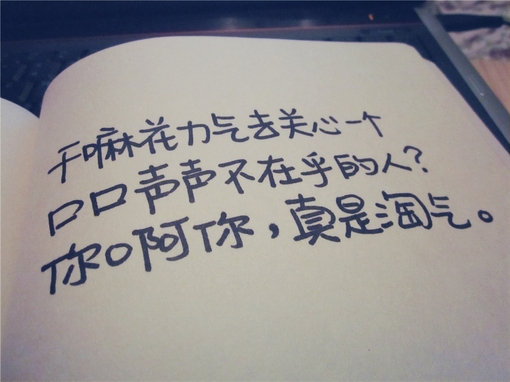 干嘛花力气去关心一个
口口声声不在乎的人?
你啊你，真是淘气。